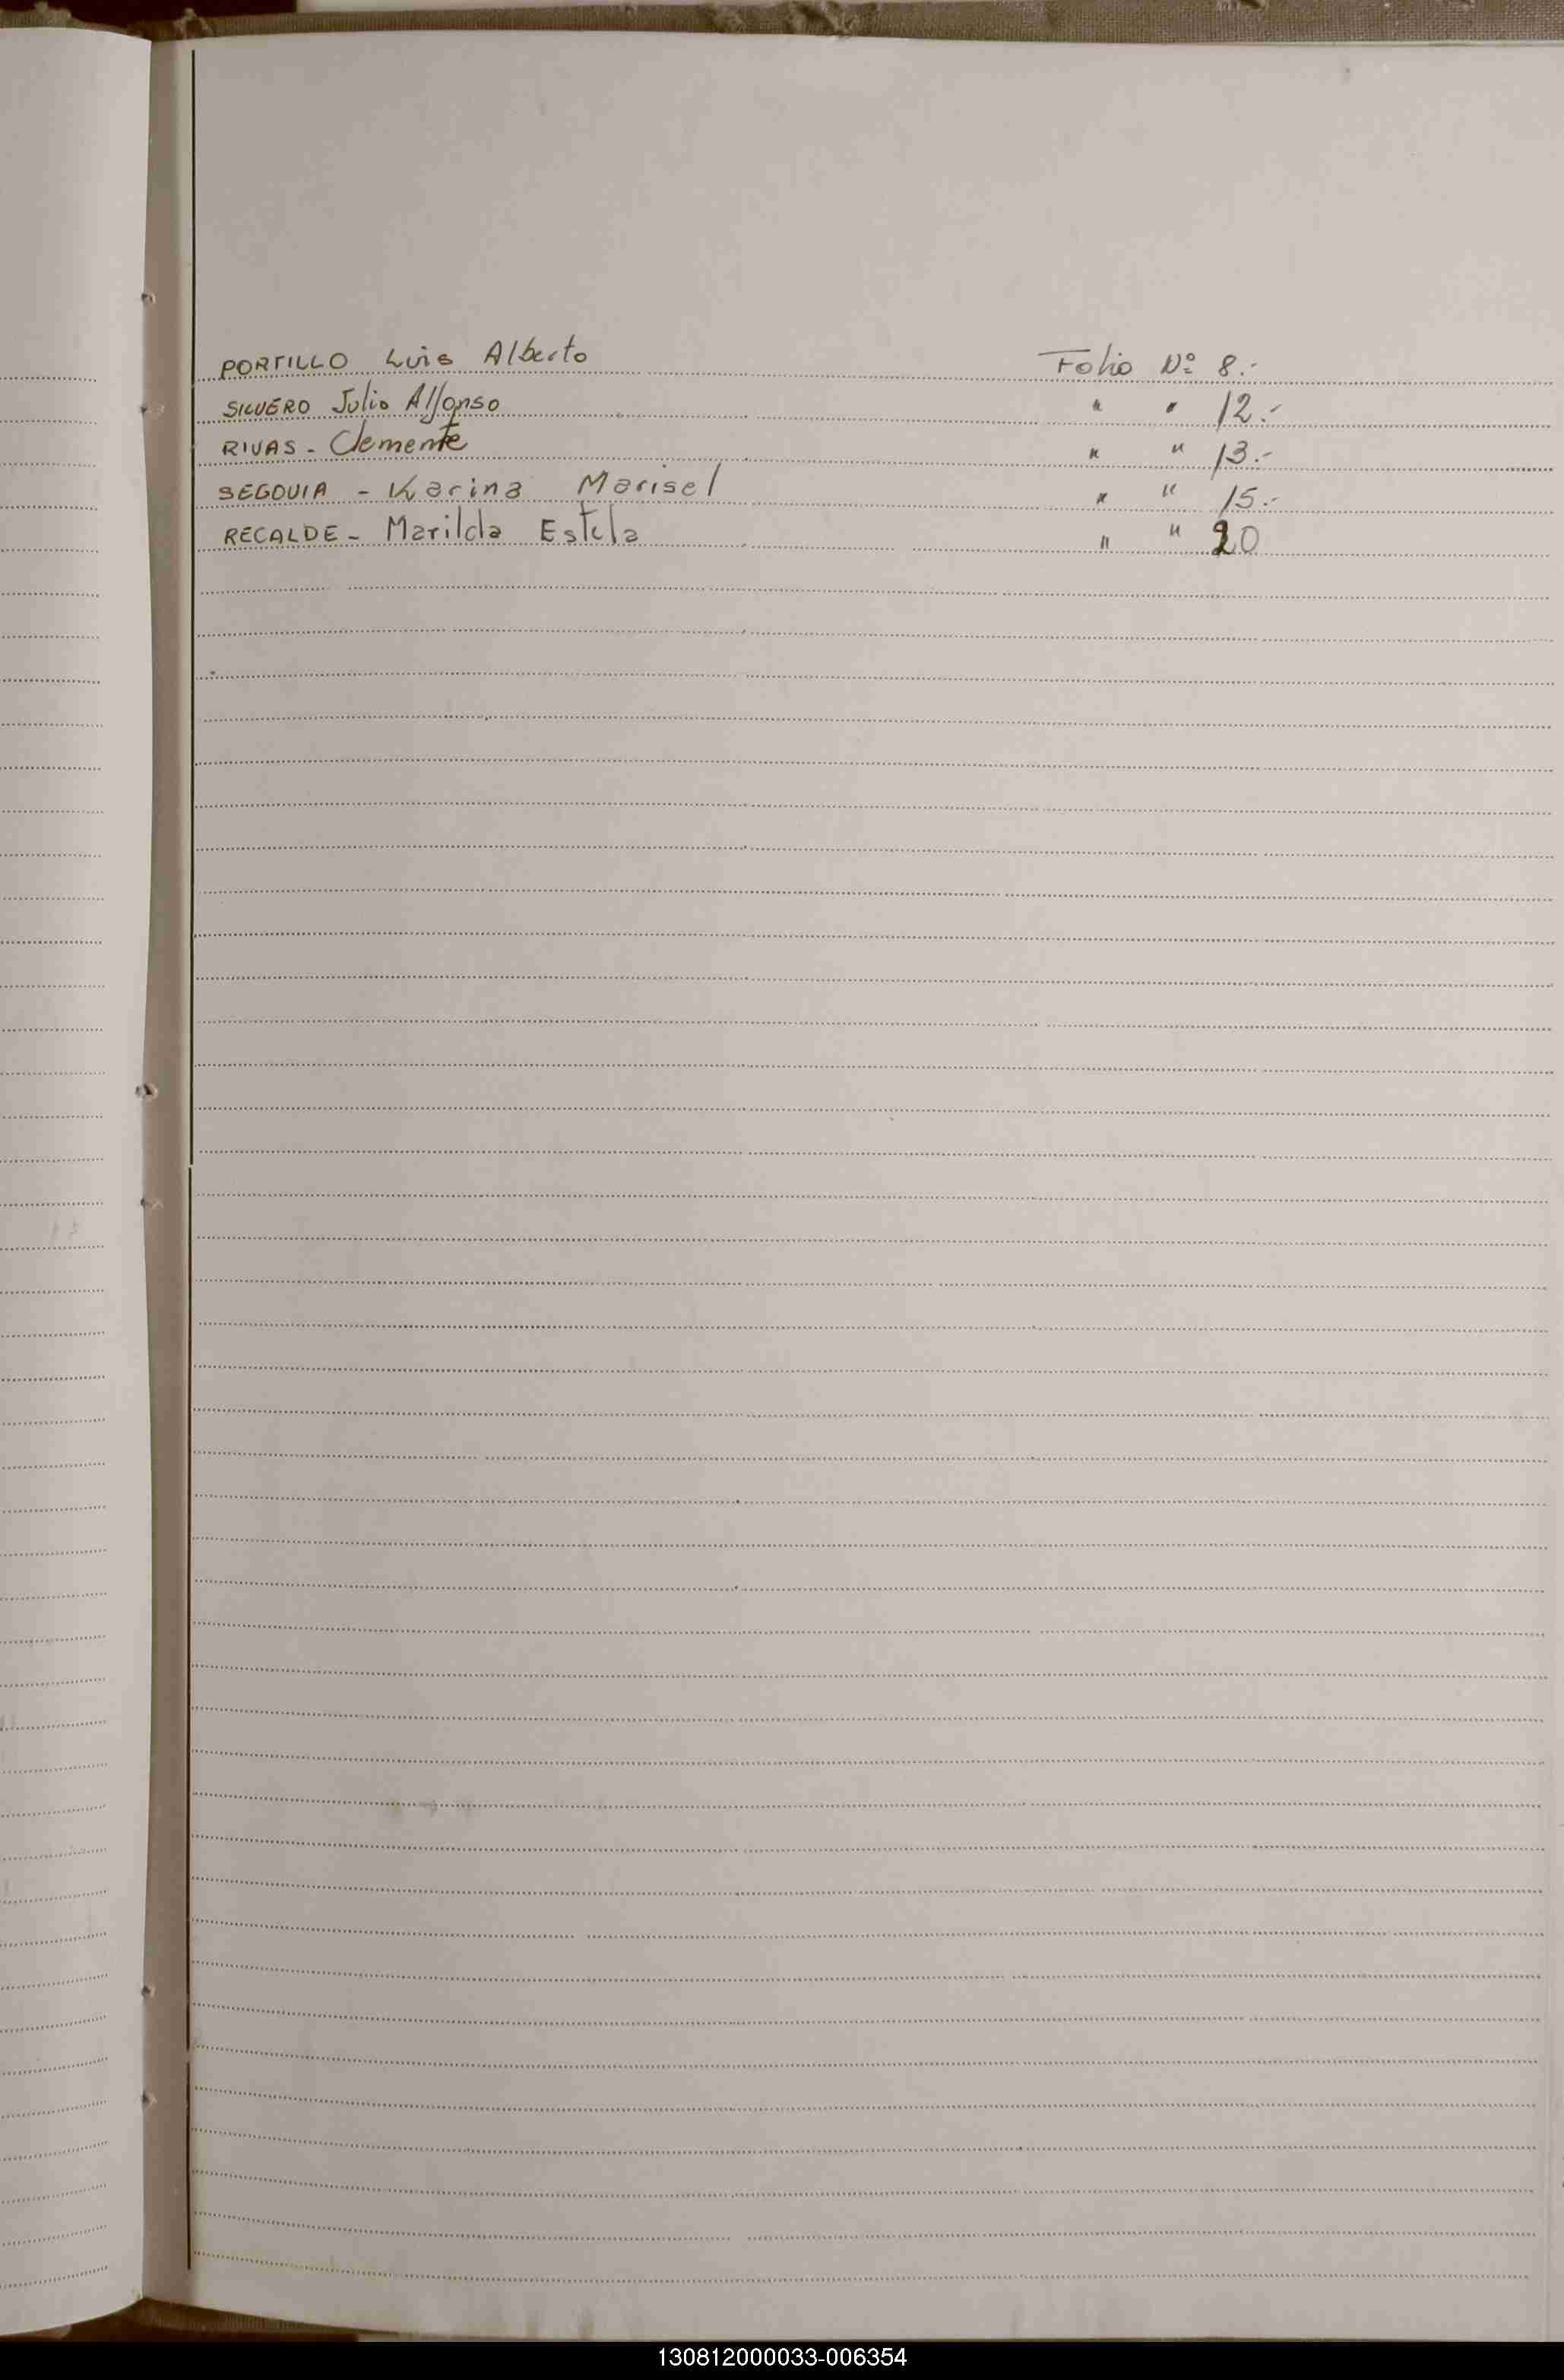 PORTILLO Luis Alberto Folio Nº 8.-
SILVERO Julio Alfonso " " 12.-
RIVAS - Clemente " " 13.-
SEGOVIA - Karina Marisel " " 15.-
RECALDE - Marilda Estela " " 20
130812000033-006354